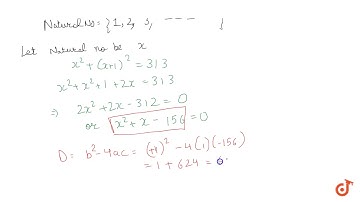 Natural nos = {1, 2, 3, ---- }
Let Natural no be x
x² + (x+1)² = 313
x² + x² + 1 + 2x = 313
⇒ 2x² + 2x - 312 = 0
or x² + x - 156 = 0
D = b² - 4ac = (+1)² - 4(1)(-156)
= 1 + 624 =
doubtnut